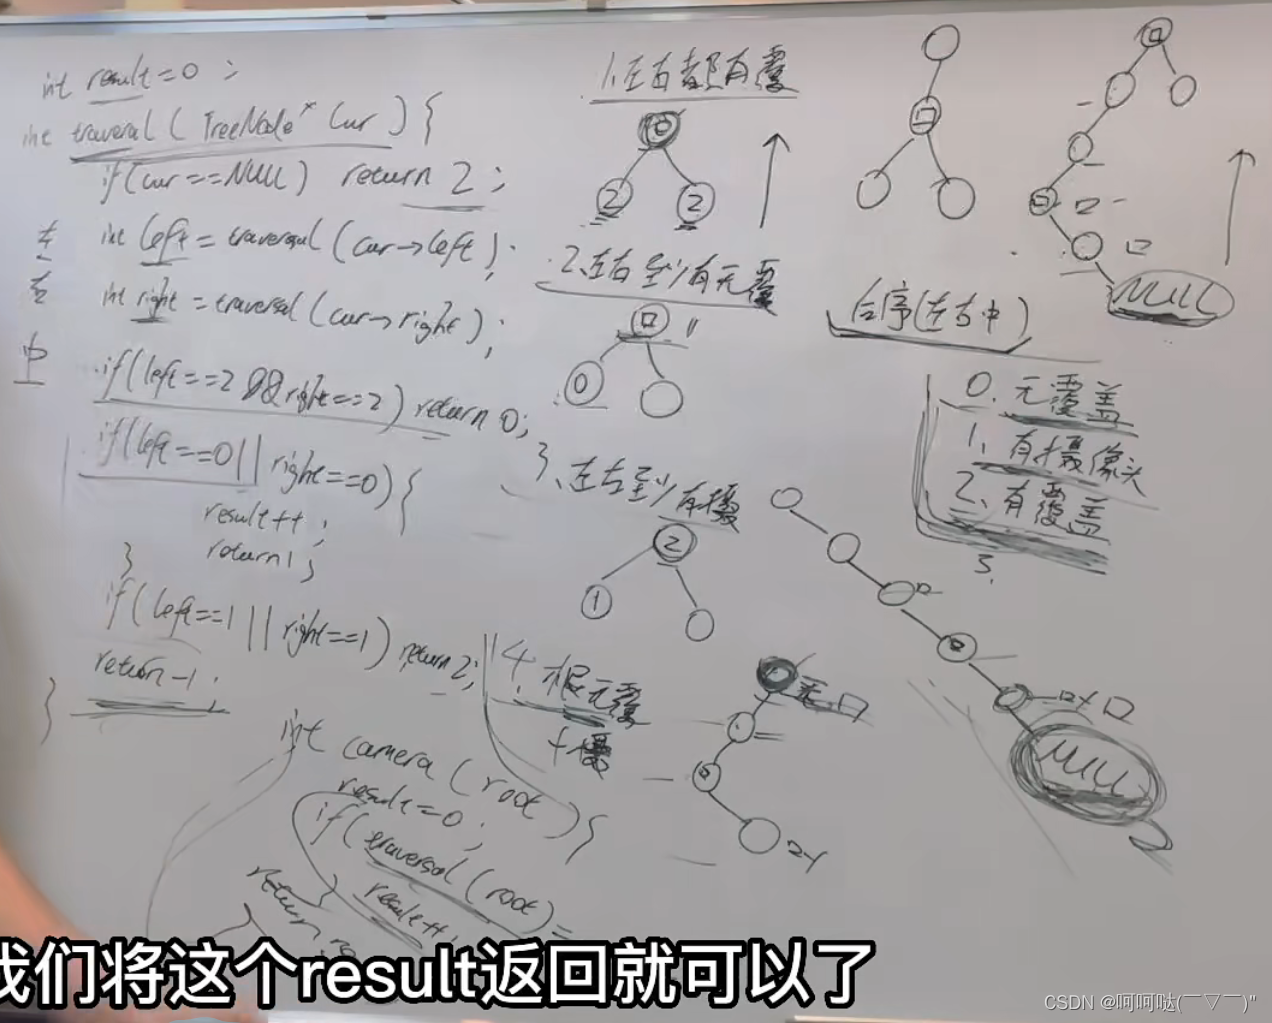 int result=0;
int traveral(TreeNode* Cur){
if(cur==NULL) return 2;
左 int left=traversal(cur→left);
右 int right=traversal(cur→right);
中 if(left==2 && right==2) return 0;
if(left==0|| right==0){
result++;
return 1;
}
if(left==1||right==1) return 2;
return -1;
}
int camera(root){
result=0;
if(traversal(root)=
result++
}
return
}
1.左右都有覆
0
2 2
2.左右至少有无覆
口
0
3、左右至少有摄
2
1
4.根无覆
+摄
后序(左右中)
NULL
0.无覆盖
1.有摄像头
2.有覆盖
3.
无口
NULL
我们将这个result返回就可以了
CSDN @呵呵哒(￣▽￣)"